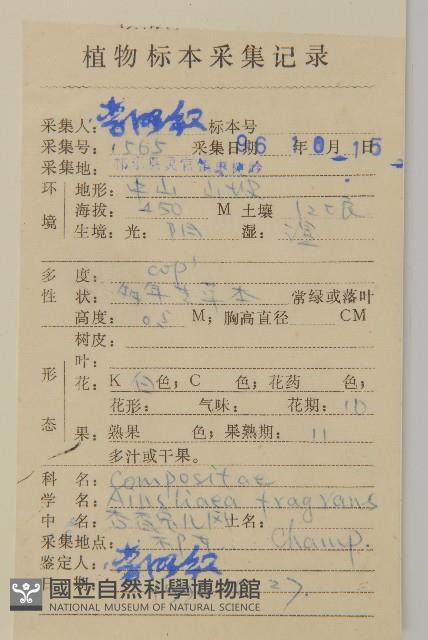 植物标本采集记录
采集人: 标本号
采集号: 1565 采集日期 96年10月15日
采集地:
环境 地形: 中山
海拔: 450 M 土壤
生境: 光: 阴 湿: 湿
多度: cop¹
性状: 多年生草本 常绿或落叶
高度: 0.3 M; 胸高直径 CM
树皮:
形态 叶:
花: K 白色; C 色; 花药 色;
花形: 气味: 花期: 10
果: 熟果 色; 果熟期: 11
多汁或干果。
科名: Compositae
学名: Ainsliaea fragrans
Champ.
中名: 杏香兔儿风 土名:
采集地点:
鉴定人:
日期: 27.
國立自然科學博物館
NATIONAL MUSEUM OF NATURAL SCIENCE